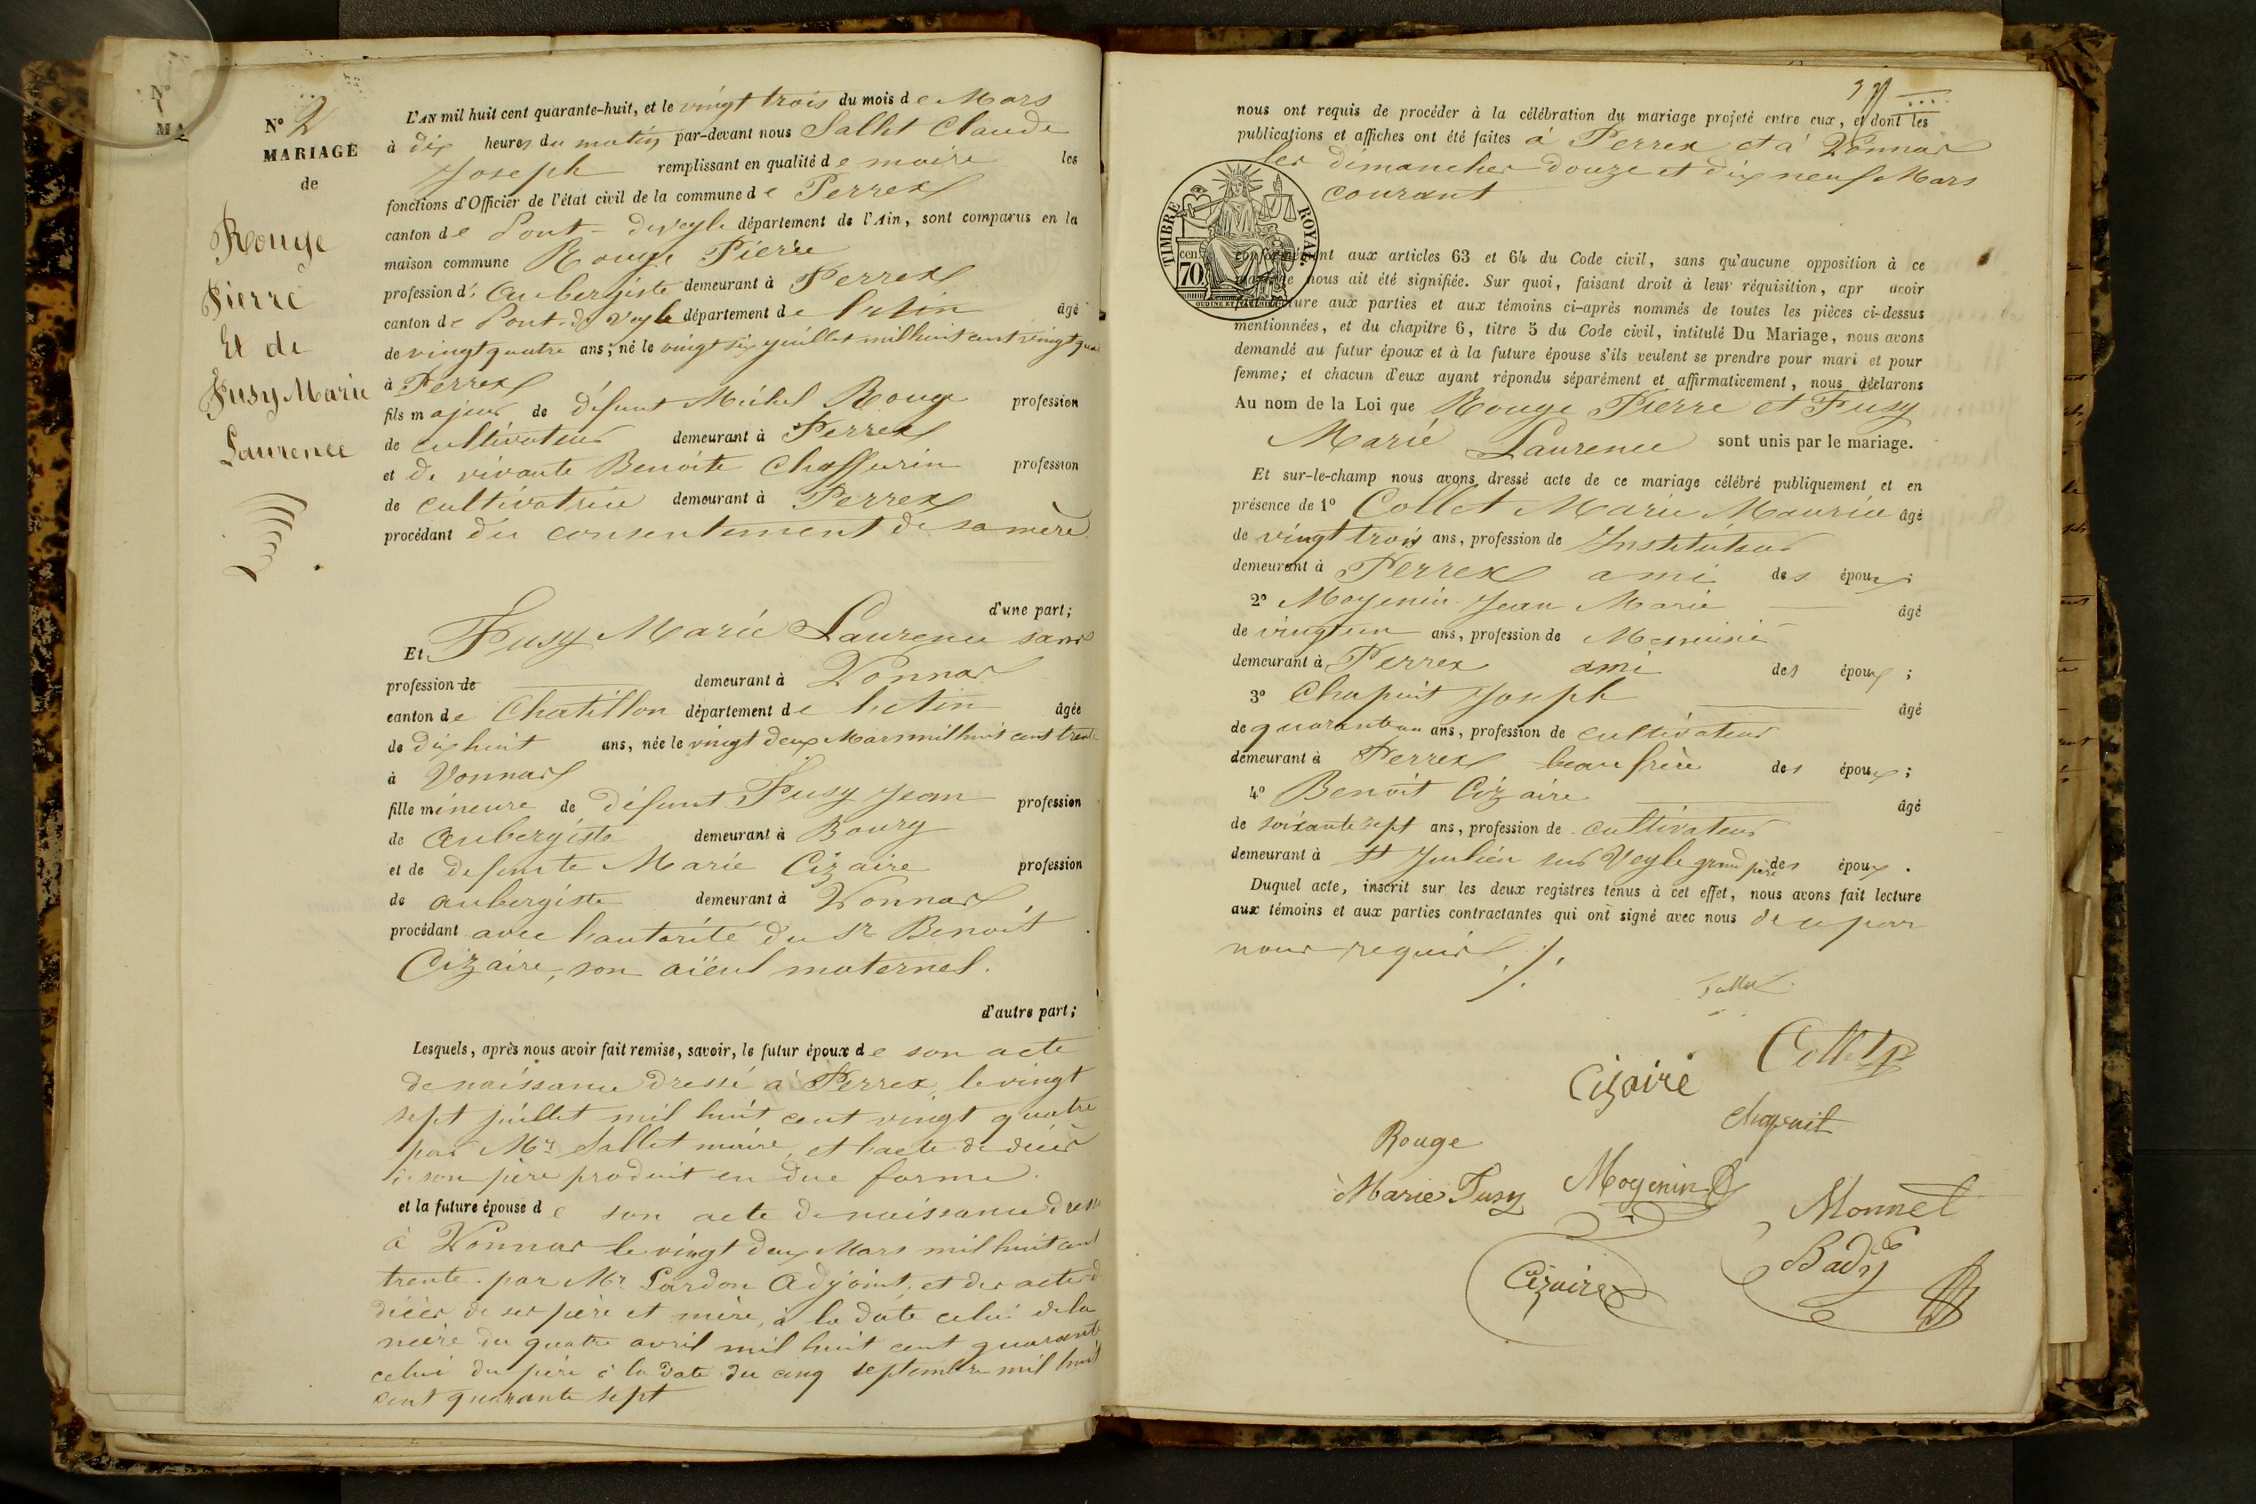 N°
MA
N° 2
MARIAGE
de
Rouge
Pierre
Et de
Fusy Marie
Laurence
L'AN mil huit cent quarante-huit, et le vingt trois du mois de Mars
à dix heures du matin par-devant nous Sallet Claude
Joseph remplissant en qualité de maire les
fonctions d'Officier de l'état civil de la commune de Perrex
canton de Pont-deveyle département de l'Ain, sont comparus en la
maison commune Rouge Pierre
profession d' Aubergiste demeurant à Perrex
canton de Pont-de-Veyle département de l'Ain âgé
de vingt quatre ans; né le vingt six juillet mil huit cent vingt qua
à Perrex
fils majeur de défunt Michel Rouge profession
de cultivateur demeurant à Perrex
et de vivante Benoite Chaffurin profession
de cultivatrice demeurant à Perrex
procédant du consentement de sa mère
d'une part;
Et Fusy Marie Laurence sans
profession de demeurant à Vonnas
canton de Chatillon département de l'Ain âgée
de dix huit ans, née le vingt deux Mars mil huit cent trente
à Vonnas
fille mineure de défunt Fusy Jean profession
de aubergiste demeurant à Bourg
et de defunte Marie Cizaire profession
de aubergiste demeurant à Vonnas,
procédant avec l'autorité du Sr Benoit
Cizaire, son aïeul maternel.
d'autre part;
Lesquels, après nous avoir fait remise, savoir, le futur époux de son acte
de naissance dressé à Perrex, le vingt
sept juillet mil huit cent vingt quatre
par Mr Sallet maire, et l'acte de décès
de son père produit en due forme.
et la future épouse de son acte de naissance dressé
à Vonnas le vingt deux Mars mil huit cent
trente. par Mr Lardon Adjoint, et des actes de
décès de ses père et mère, à la date celui de la
mère du quatre avril mil huit cent quarante
celui du père à la date du cinq septembre mil huit
cent quarante sept
nous ont requis de procéder à la célébration du mariage projeté entre eux, et dont les
publications et affiches ont été faites à Perrex et à Vonnas
les dimanches douze et dix neuf Mars
courant
TIMBRE ROYAL
cen. 70
conformément aux articles 63 et 64 du Code civil, sans qu'aucune opposition à ce
mariage nous ait été signifiée. Sur quoi, faisant droit à leur réquisition, apr avoir
lecture aux parties et aux témoins ci-après nommés de toutes les pièces ci-dessus
mentionnées, et du chapitre 6, titre 5 du Code civil, intitulé Du Mariage, nous avons
demandé au futur époux et à la future épouse s'ils veulent se prendre pour mari et pour
femme; et chacun d'eux ayant répondu séparément et affirmativement, nous déclarons
Au nom de la Loi que Rouge Pierre et Fusy
Marie Laurence sont unis par le mariage.
Et sur-le-champ nous avons dressé acte de ce mariage célébré publiquement et en
présence de 1° Collet Marie Maurice âgé
de vingt trois ans, profession de Instituteur
demeurant à Perrex ami des époux;
2° Moyenin Jean Marie âgé
de vingt un ans, profession de
demeurant à Perrex ami des époux;
3° Chapuit Joseph âgé
de quarante un ans, profession de cultivateur
demeurant à Perrex beau frère des époux;
4° Benoit Cizaire âgé
de soixante sept ans, profession de cultivateur
demeurant à St Julien sur Veyle grand père des époux.
Duquel acte, inscrit sur les deux registres tenus à cet effet, nous avons fait lecture
aux témoins et aux parties contractantes qui ont signé avec nous de ce par
nous requis ./.
Sallet
Collet
Cizaire
Chapuit
Rouge
Marie Fusy
Moyenin
Monnet
Cizaire
Badoy